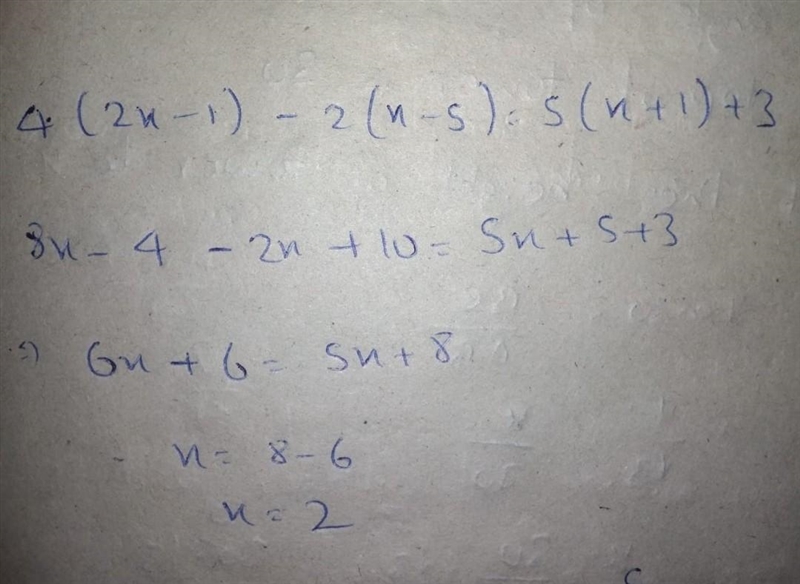 4 (2x-1) - 2(x-5) = 5(x+1)+3
8x - 4 - 2x + 10 = 5x + 5+3
⇒ 6x + 6 = 5x + 8
x = 8-6
x = 2